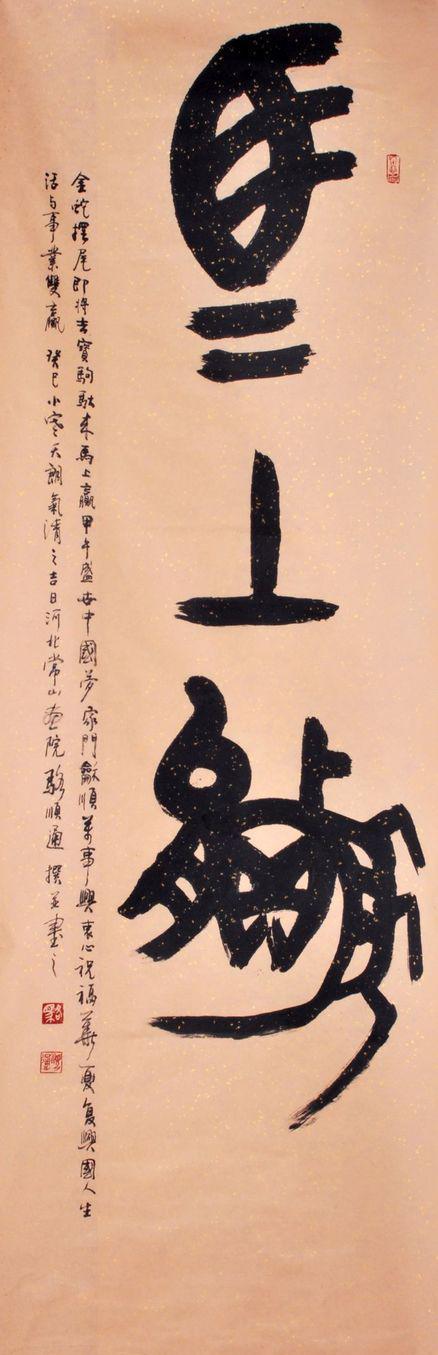 馬上贏
金蛇擺尾即將去寶駒馱來馬上贏甲午盛世中國夢家門龢順萬事興衷心祝福華夏复興國人生
活与事業雙贏 癸巳小寒天朗氣清之吉日河北常山画院駱順通撰并書之